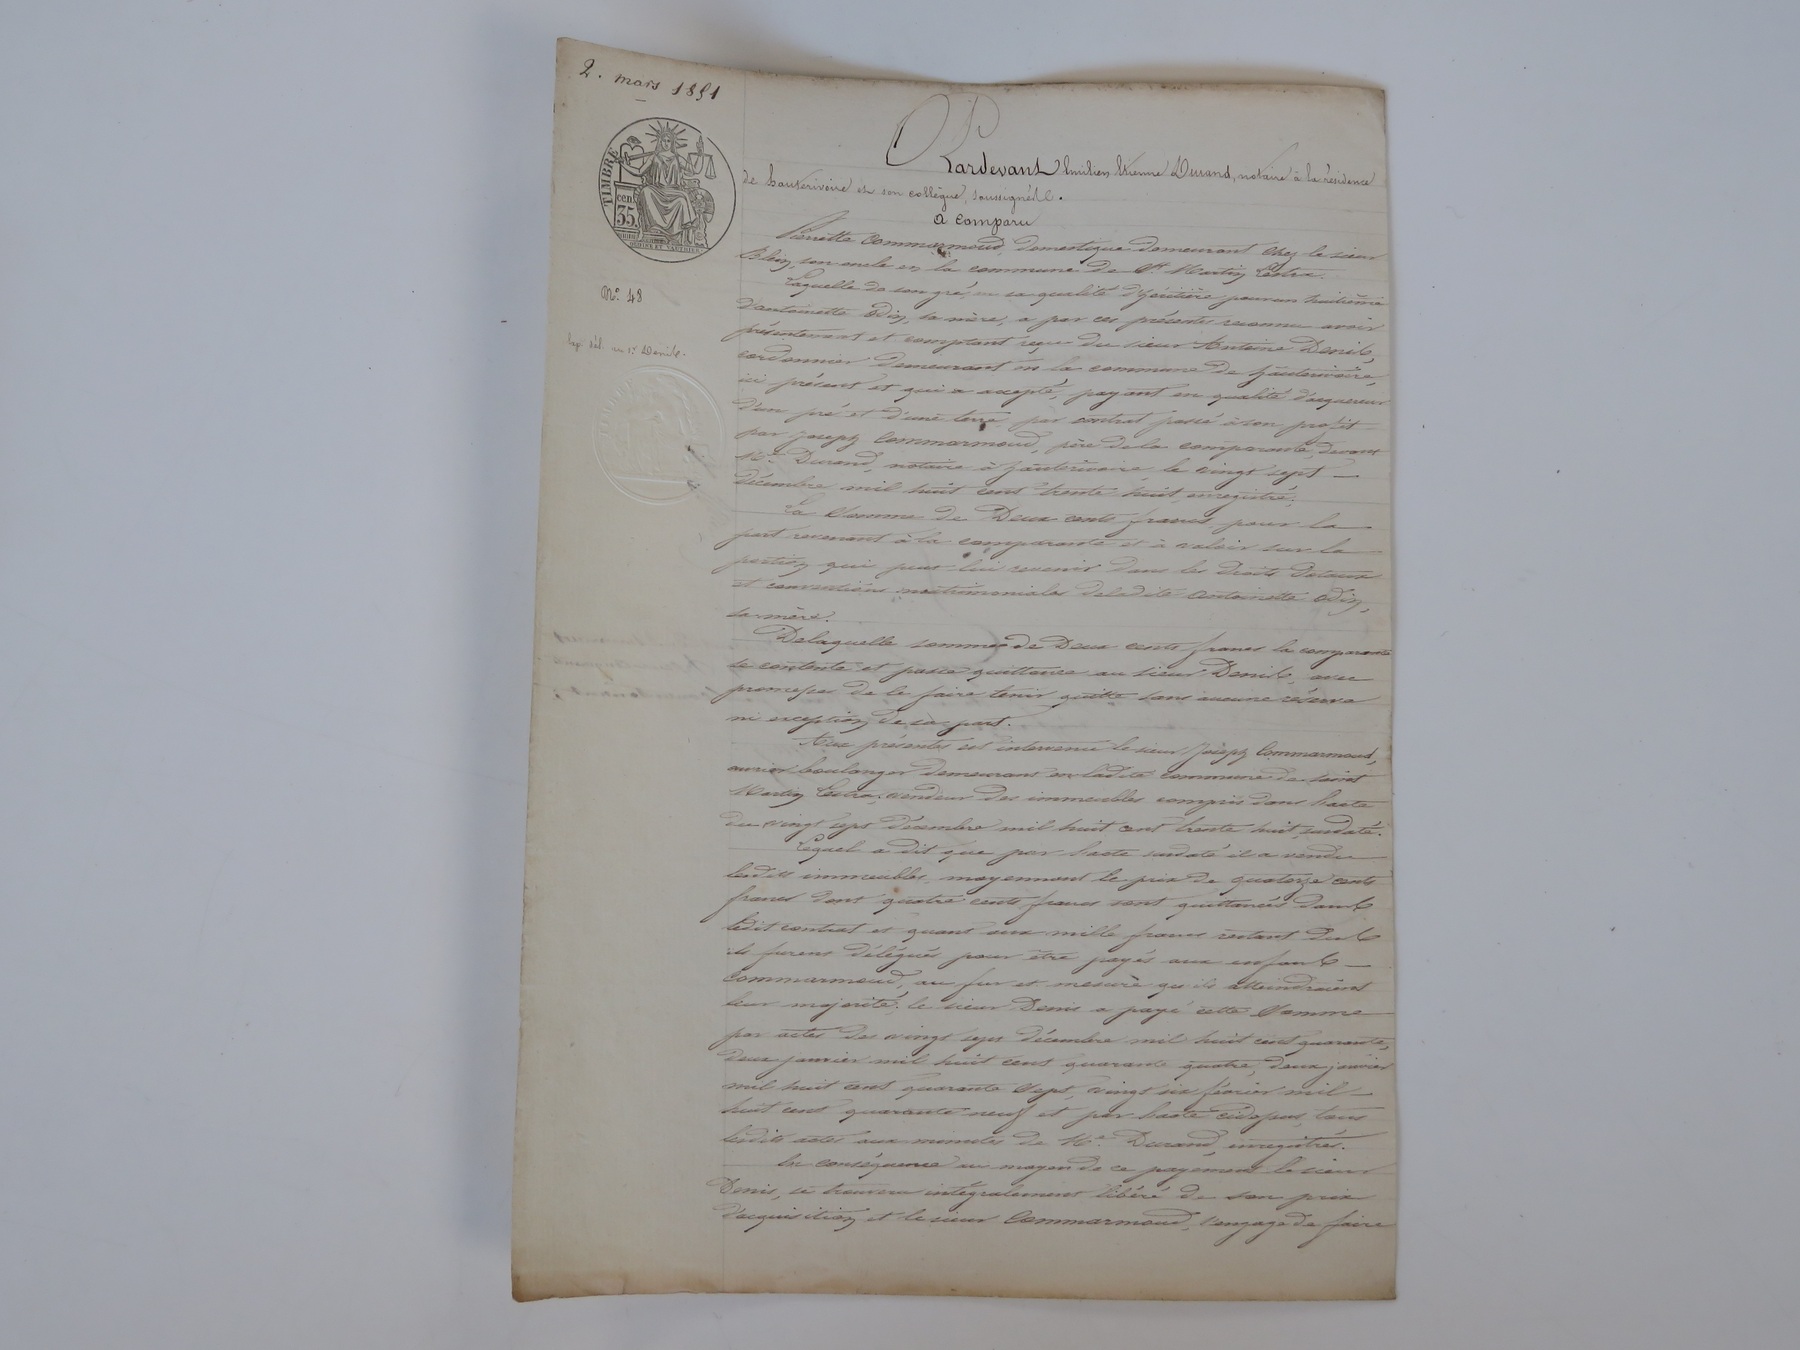 2. mars 1851
TIMBRE
cen
35
N° 48
Exp. dél. au Sr. Denis.
Pardevant Emilien Etienne Durand, notaire à la résidence
de hauterivoire et son collègue, soussignés.
a comparu
Pierrette Commarmond, domestique demeurant chez le sieur
Blein, son oncle en la commune de St. Martin Lestra.
Laquelle de son gré, en sa qualité d'héritière pour un huitième
d'antoinette Odin, sa mère, a par ces présentes reconnu avoir
présentement et comptant reçu du sieur Antoine Denis,
cordonnier demeurant en la commune de hauterivoire,
ici présent et qui a accepté, payant en qualité d'acquéreur
d'un pré et d'une terre par contrat passé à son profit
par Joseph Commarmond, père de la comparante, devant
Me. Durand, notaire à hauterivoire le vingt sept
décembre mil huit cent trente huit, enregistré.
La Somme de Deux cents francs pour la
part revenant à la comparante et à valoir sur la
portion qui peut lui revenir dans les droits dotaux
et conventions matrimoniales deladite antoinette Odin,
sa mère.
Delaquelle somme de Deux cents francs la comparante
se contente et passe quittance au sieur Denis, avec
promesses de le faire tenir quitte sans aucune réserve
ni exception de sa part.
Aux présentes est intervenu le sieur Joseph Commarmond,
ouvrier boulanger demeurant en ladite commune de Saint
Martin Lestra, vendeur des immeubles compris dans l'acte
du vingt sept décembre mil huit cent trente huit, susdaté.
Lequel a dit que par l'acte susdaté il a vendu
lesdits immeubles moyennant le prix de quatorze cents
francs dont quatre cents francs sont quittancés dans
ledit contrat et quant aux mille francs restant dus
ils furent délégués pour être payés aux enfants
Commarmond, au fur et mesure qu'ils atteindraient
leur majorité; le sieur Denis a payé cette Somme
par actes des vingt sept décembre mil huit cent quarante,
deux janvier mil huit cent quarante quatre, deux janvier
mil huit cent quarante Sept, vingt six février mil
huit cent quarante neuf et par l'acte cidessus, tous
lesdits actes aux minutes de Me. Durand, enregistrés.
En conséquence au moyen de ce payement le sieur
Denis, se trouvera intégralement libéré de son prix
d'acquisition et le sieur Commarmond, s'engage de faire